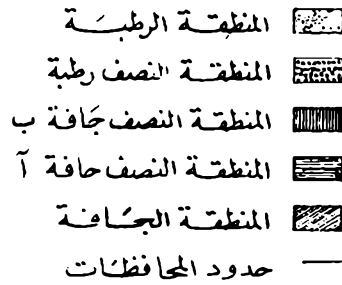 المنطقة الرطبة
المنطقة النصف رطبة
المنطقة النصف جافة ب
المنطقة النصف جافة آ
المنطقة الجافة
حدود المحافظات